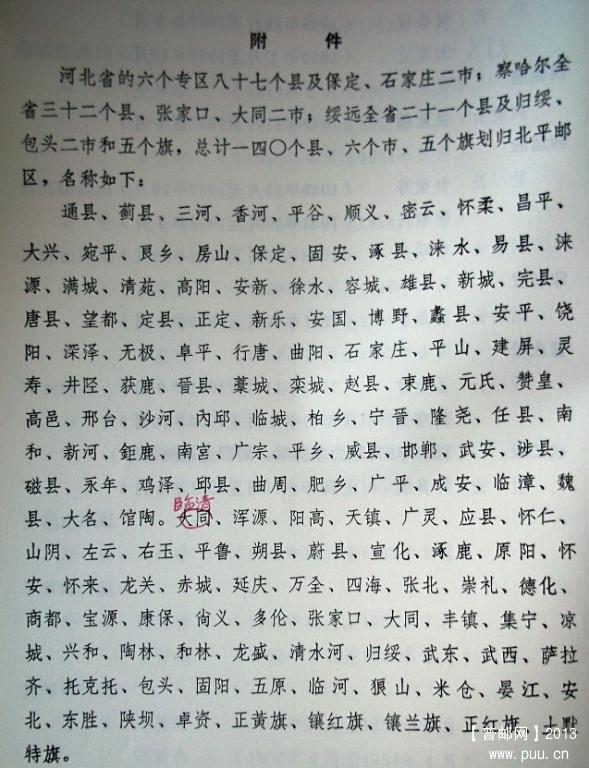 附件
河北省的六个专区八十七个县及保定、石家庄二市；察哈尔全
省三十二个县、张家口、大同二市；绥远全省二十一个县及归绥、
包头二市和五个旗，总计一四〇个县、六个市、五个旗划归北平邮
区，名称如下：
通县、蓟县、三河、香河、平谷、顺义、密云、怀柔、昌平、
大兴、宛平、艮乡、房山、保定、固安、涿县、涞水、易县、涞
源、满城、清苑、高阳、安新、徐水、容城、雄县、新城、完县、
唐县、望都、定县、正定、新乐、安国、博野、蠡县、安平、饶
阳、深泽、无极、阜平、行唐、曲阳、石家庄、平山、建屏、灵
寿、井陉、获鹿、晋县、藁城、栾城、赵县、束鹿、元氏、赞皇、
高邑、邢台、沙河、内邱、临城、柏乡、宁晋、隆尧、任县、南
和、新河、鉅鹿、南宫、广宗、平乡、威县、邯郸、武安、涉县、
磁县、永年、鸡泽、邱县、曲周、肥乡、广平、成安、临漳、魏
临清
县、大名、馆陶。大同、浑源、阳高、天镇、广灵、应县、怀仁、
山阴、左云、右玉、平鲁、朔县、蔚县、宣化、涿鹿、原阳、怀
安、怀来、龙关、赤城、延庆、万全、四海、张北、崇礼、德化、
商都、宝源、康保、尚义、多伦、张家口、大同、丰镇、集宁、凉
城、兴和、陶林、和林、龙盛、清水河、归绥、武东、武西、萨拉
齐、托克托、包头、固阳、五原、临河、狼山、米仓、晏江、安
北、东胜、陕坝、卓资、正黄旗、镶红旗、镶兰旗、正红旗、土默
特旗。
【普邮网】2013
www.puu.cn